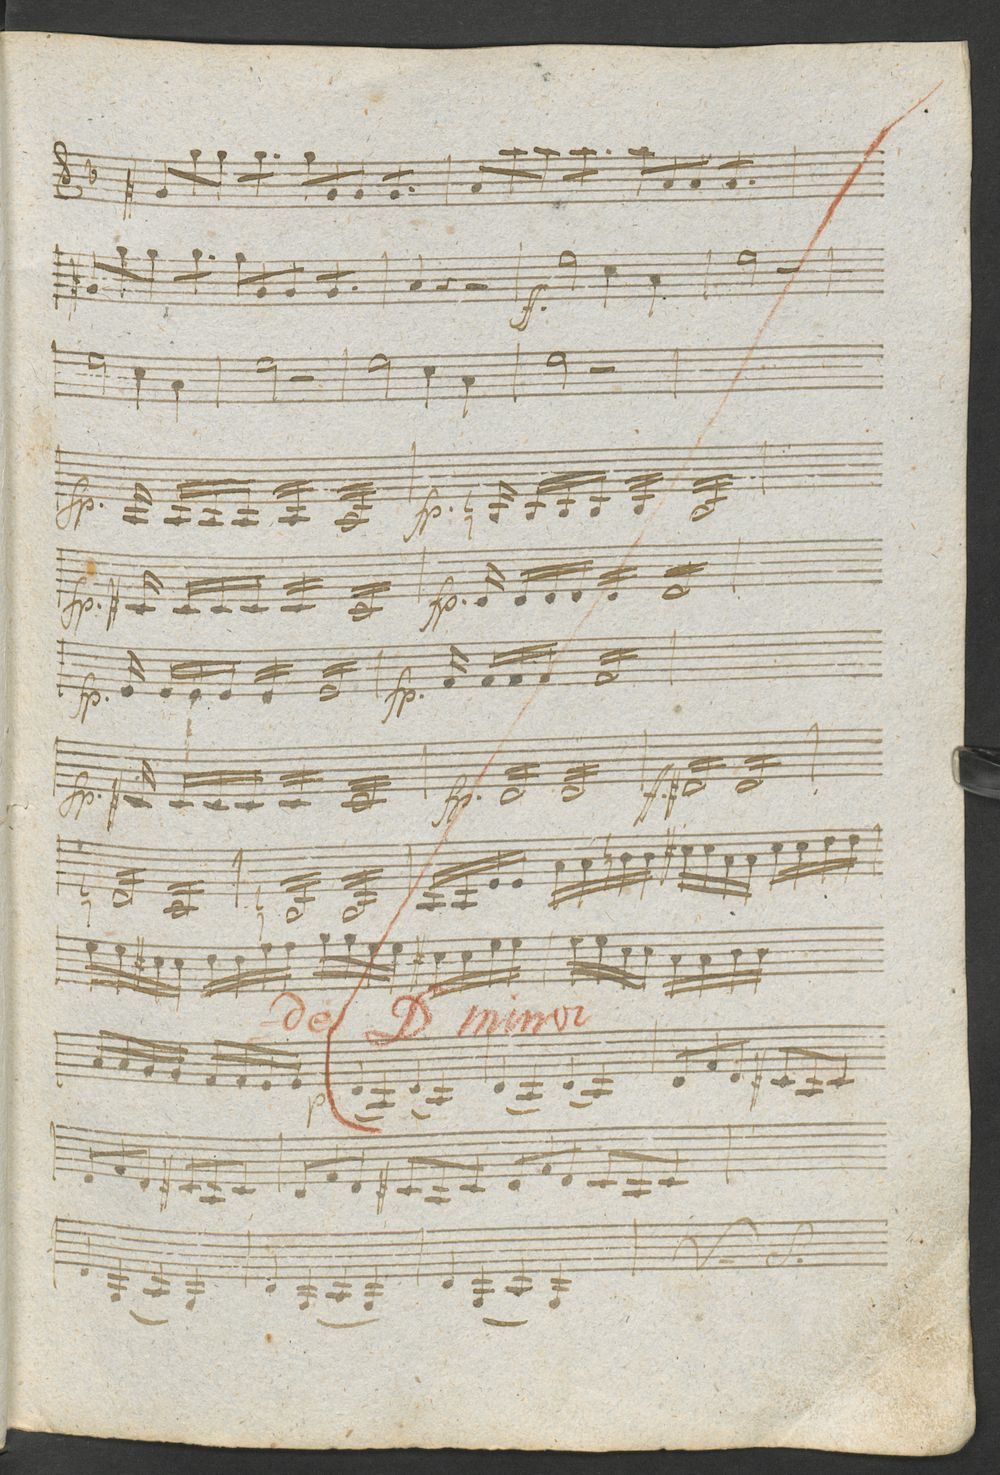 f.
fp. fp.
fp. fp.
fp. fp.
fp. fp. f.
de D minor
p
V S.